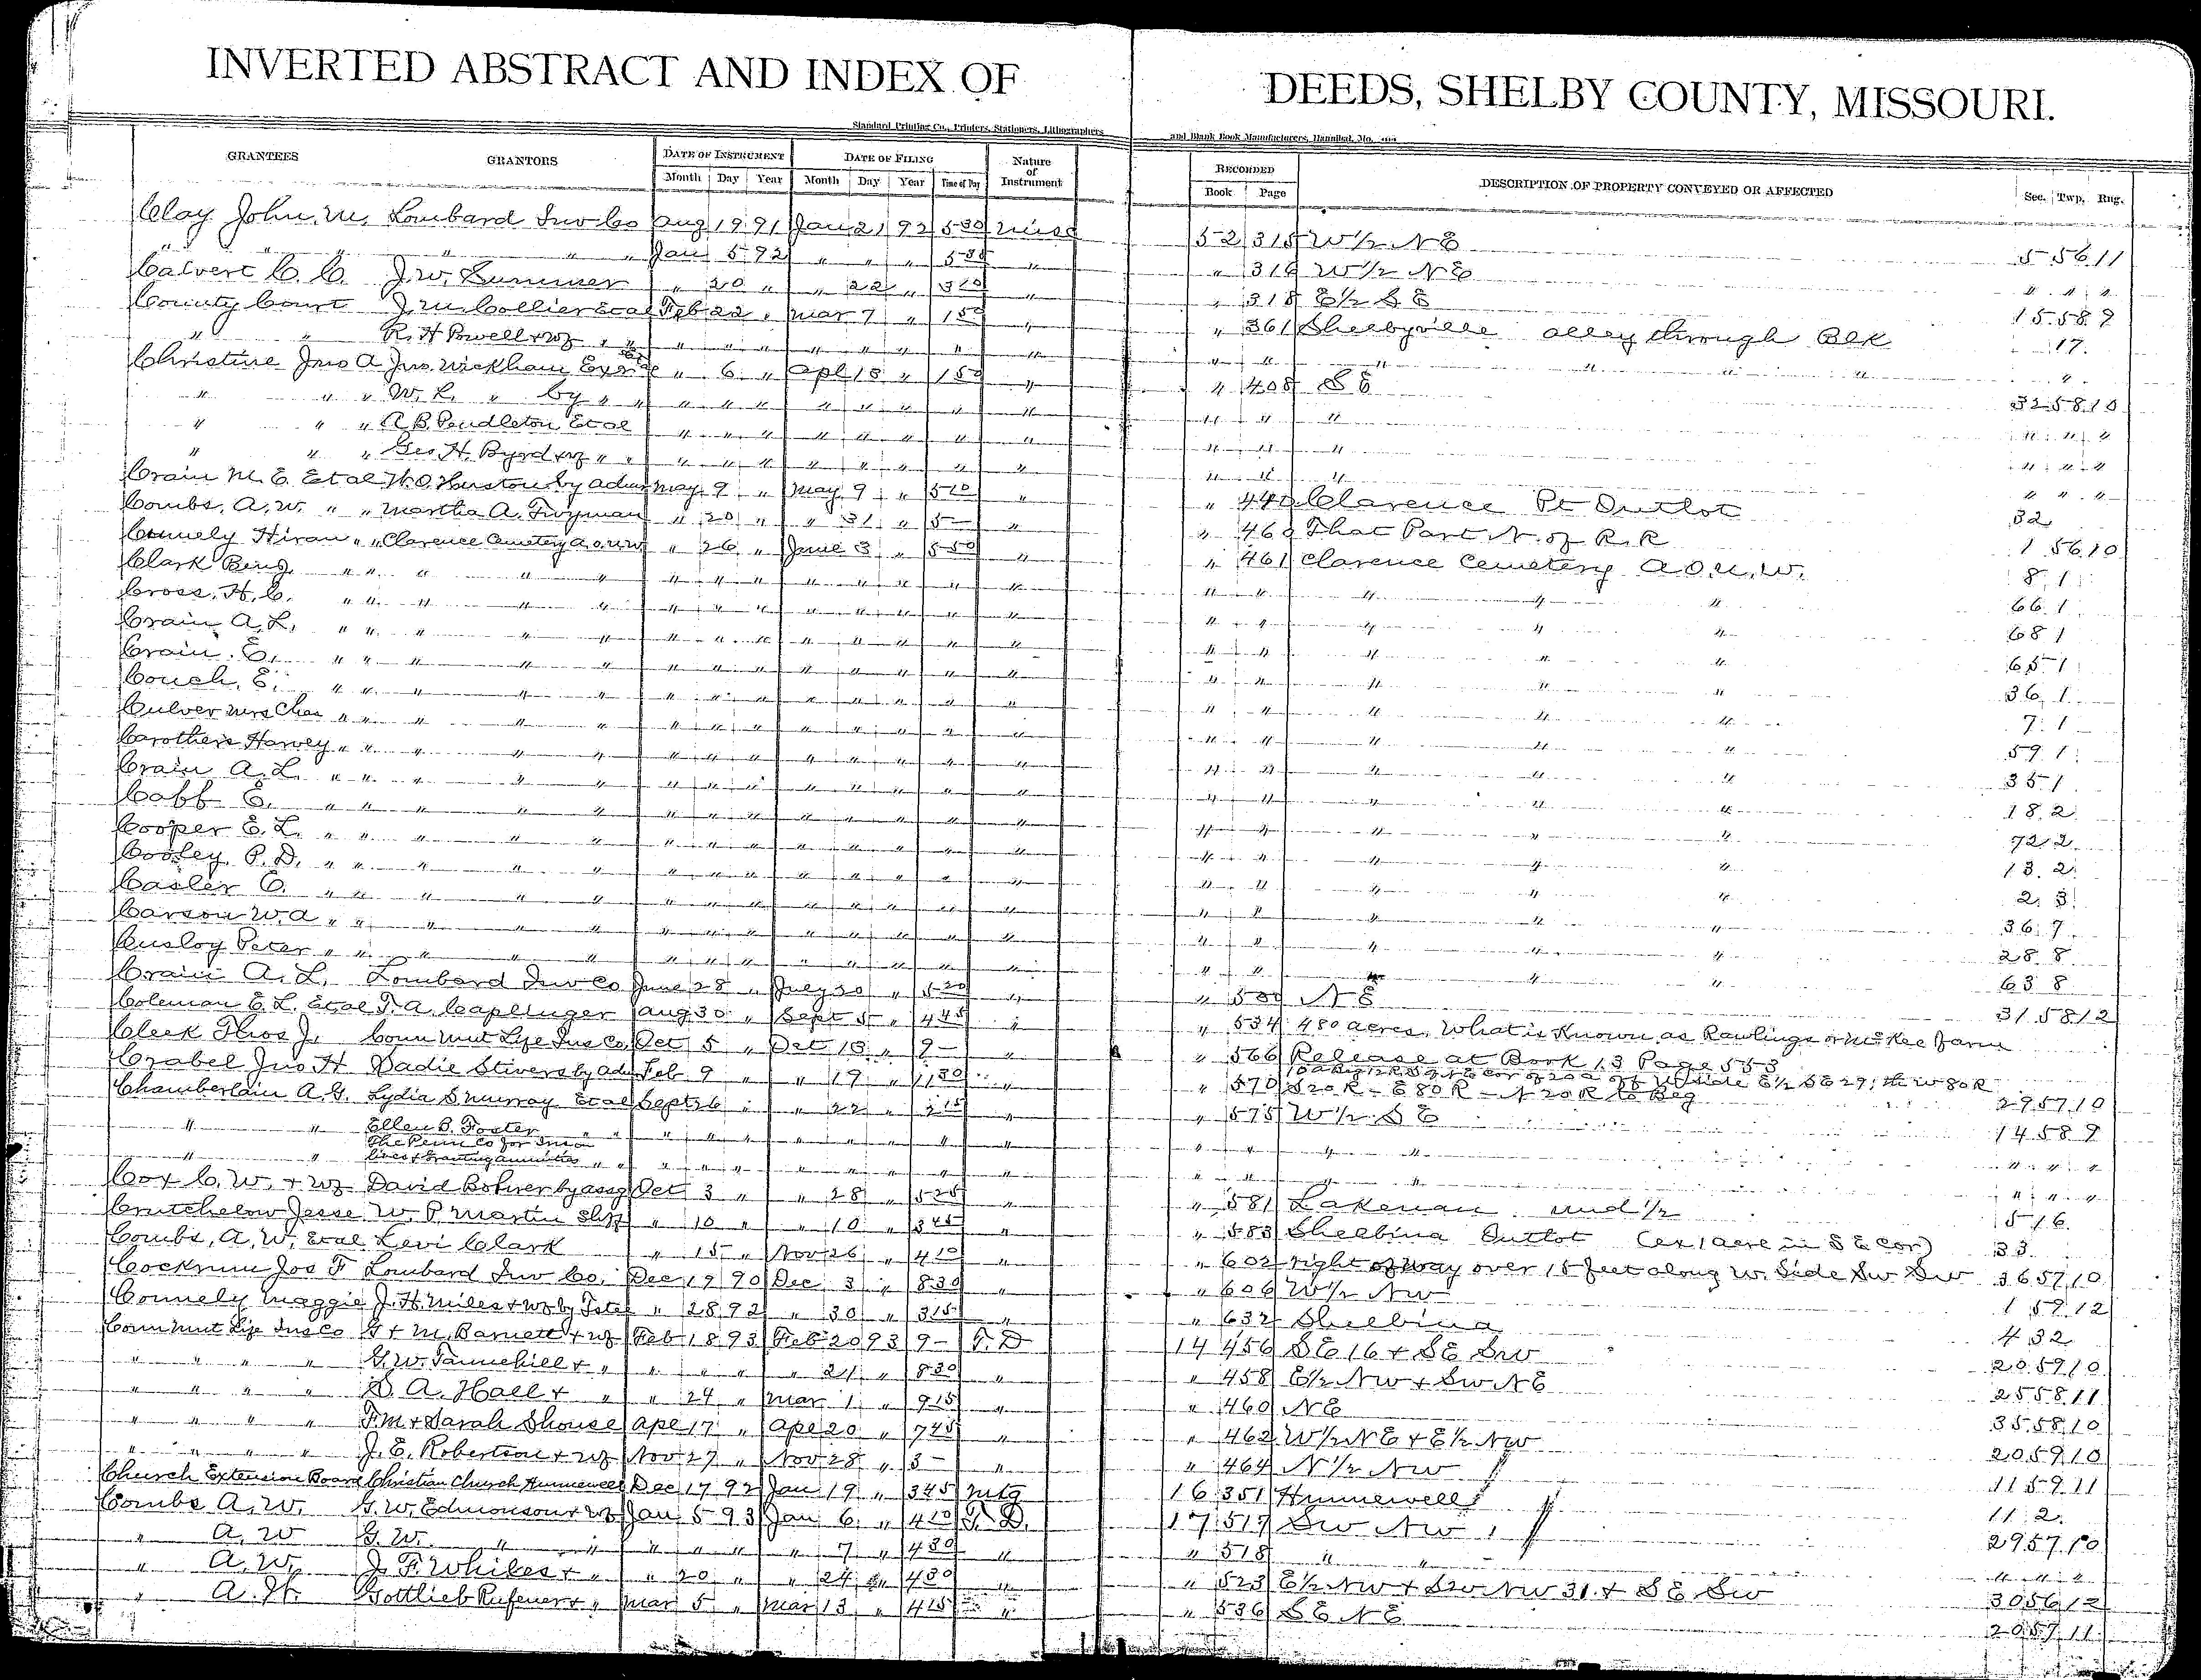 INVERTED ABSTRACT AND INDEX OF DEEDS, SHELBY COUNTY, MISSOURI.
Standard Printing Co., Printers, Stationers, Lithographers and Blank Book Manufacturers, Hannibal, Mo.
GRANTEES GRANTORS DATE OF INSTRUMENT DATE OF FILING Nature of Instrument RECORDED DESCRIPTION OF PROPERTY CONVEYED OR AFFECTED Sec. Twp. Rng.
Month Day Year Month Day Year Time of Day Book Page
Clay John M. Lombard Inv Co Aug 19 91 Jan 21 92 5 30 Misc 52 315 W 1/2 N E 5 56 11
" " " " " " Jan 5 92 " " " 5 30 " " 316 W 1/2 N E " " "
Calvert C. C. J. W. Summer " 20 " " 22 " 3 10 " " 318 E 1/2 S E 15 58 9
County Court J. M. Collier Et al Feb 22 " Mar 7 " 1 50 " " 361 Shelbyville alley through Blk 17.
" " R. H Powell + Wf " " " " " " " " " " " " " " " " "
Christine Jno A Jno. Wickham Exr " 6 " Apl 18 " 1 50 " " 408 S E 32 58 10
" " " W. L. " by " " " " " " " " " " " " " " " "
" " " A. B. Pendleton Et al " " " " " " " " " " " " " "
" " " Geo H. Byrd + wf " " " " " " " " " " " " " " " "
Crain M. E. Et al H. O. Huston by Admr May 9 " May 9 " 5 10 " " 440 Clarence Pt Outlot 32
Combs, A. W. " " Martha A. Twyman " 20 " " 31 " 5 - " " 460 That Part N. of R. R 1 56 10
Connely Hiram " " Clarence Cemetery A.O.U.W " 26 " June 3 " 5 50 " " 461 Clarence Cemetery A.O.U.W. 8 1
Clark Benj. " " " " " " " " " " " " " " " " " " 66 1
Cross, H. C. " " " " " " " " " " " " " " " " " " 68 1
Crain A. L. " " " " " " " " " " " " " " " " " " 65 1
Crain. E. " " " " " " " " " " " " " " " " " " 36 1
Couch, E. " " " " " " " " " " " " " " " " " " 7 1
Culver Mrs Chas " " " " " " " " " " " " " " " " " " 59 1
Carothers Harvey " " " " " " " " " " " " " " " " " " 35 1
Crain A. L. " " " " " " " " " " " " " " " " " " 18 2
E. " " " " " " " " " " " " " " " " " " 72 2
Cooper E. L. " " " " " " " " " " " " " " " " " " 13 2
Cooley. P. D. " " " " " " " " " " " " " " " " " " 2 3
Casler C. " " " " " " " " " " " " " " " " " " 36 7
Carson W. A " " " " " " " " " " " " " " " " " " 28 8
Peter " " " " " " " " " " " " " " " " " " 63 8
Crain A. L. Lombard Inv Co June 28 " July 30 " 5 20 " " 500 N E 31 58 12
Coleman E. L. Et al T. A. Caplinger Aug 30 " Sept 5 " 4 45 " " 534 480 acres, What is Known as Rawlings or McKee farm
Cleek Thos J. Conn Mut Life Ins Co. Oct 5 " Oct 18 " 9 - " " 566 Release at Book 13 Page 553
Crabel Jno H Sadie Stivers by Adm Feb 9 " " 19 " 11 30 " " 570 S 20 R - E 80 R - N 20 R to Beg 29 57 10
Chamberlain A. G. Lydia S Murray Et al Sept 26 " " 22 " 2 15 " " 575 W 1/2 S E 14 58 9
" " Ellen B. Foster " " " " " " " " " " " " " " " "
" " The Penn Co for Ins on Lives + Granting annuities " " " " " " " " " " " " " " " "
Cox C. W. + wf David Bohrer by assg Oct 3 " " 28 " 5 25 " " 581 Lakenan und 1/2 5 16
Crutchelow Jesse W. P. Martin Shff " 10 " " 10 " 3 45 " " 583 Shelbina Outlot (ex 1 acre in S E cor) 33
Combs, A. W. Et al Levi Clark " 15 " Nov 26 " 4 10 " " 602 right of way over 15 feet along W. Side Sw Sw 36 57 10
Cockrum Jos F Lombard Inv Co. Dec 19 90 Dec 3 " 8 30 " " 606 W 1/2 Nw 1 59 12
Connely Maggie J. H. Miles + wf by Tstee " 28 92 " 30 " 3 15 " " 632 Shelbina 4 32
Conn Mut Life Ins Co G + M. Barnett + wf Feb 18 93 Feb 20 93 9 - T. D 14 456 S E 16 + S E Sw 20 59 10
" " " " G. W. Tannehill + " " " " " 21 " 8 30 " " 458 E 1/2 Nw + Sw N E 25 58 11
" " " " S. A. Hall + " " 24 " Mar 1 " 9 15 " " 460 N E 35 58 10
" " " " F. M + Sarah Shouse Apl 17 " Apl 20 " 7 45 " " 462 W 1/2 N E + E 1/2 Nw 20 59 10
" " " " J. E. Robertson + wf Nov 27 " Nov 28 " 3 - " " 464 N 1/2 Nw 11 59 11
Church Extension Board Christian Church Hunnewell Dec 17 92 Jan 19 " 3 45 Mtg 16 351 Hunnewell 11 2
Combs A. W. G. W. Edmonson + wf Jan 5 93 Jan 6 " 4 10 T. D. 17 517 Sw Nw 29 57 10
" A. W G. W. " " " " " " 7 " 4 30 " " 518 " " " " "
" A. W. J. F. Whiles + " " 20 " " 24 " 4 30 " " 523 E 1/2 Nw + Sw Nw 31 + S E Sw 30 56 12
" A. W. Gottlieb Rufener + " Mar 5 " Mar 13 " 4 15 " " 536 S E N E 20 57 11